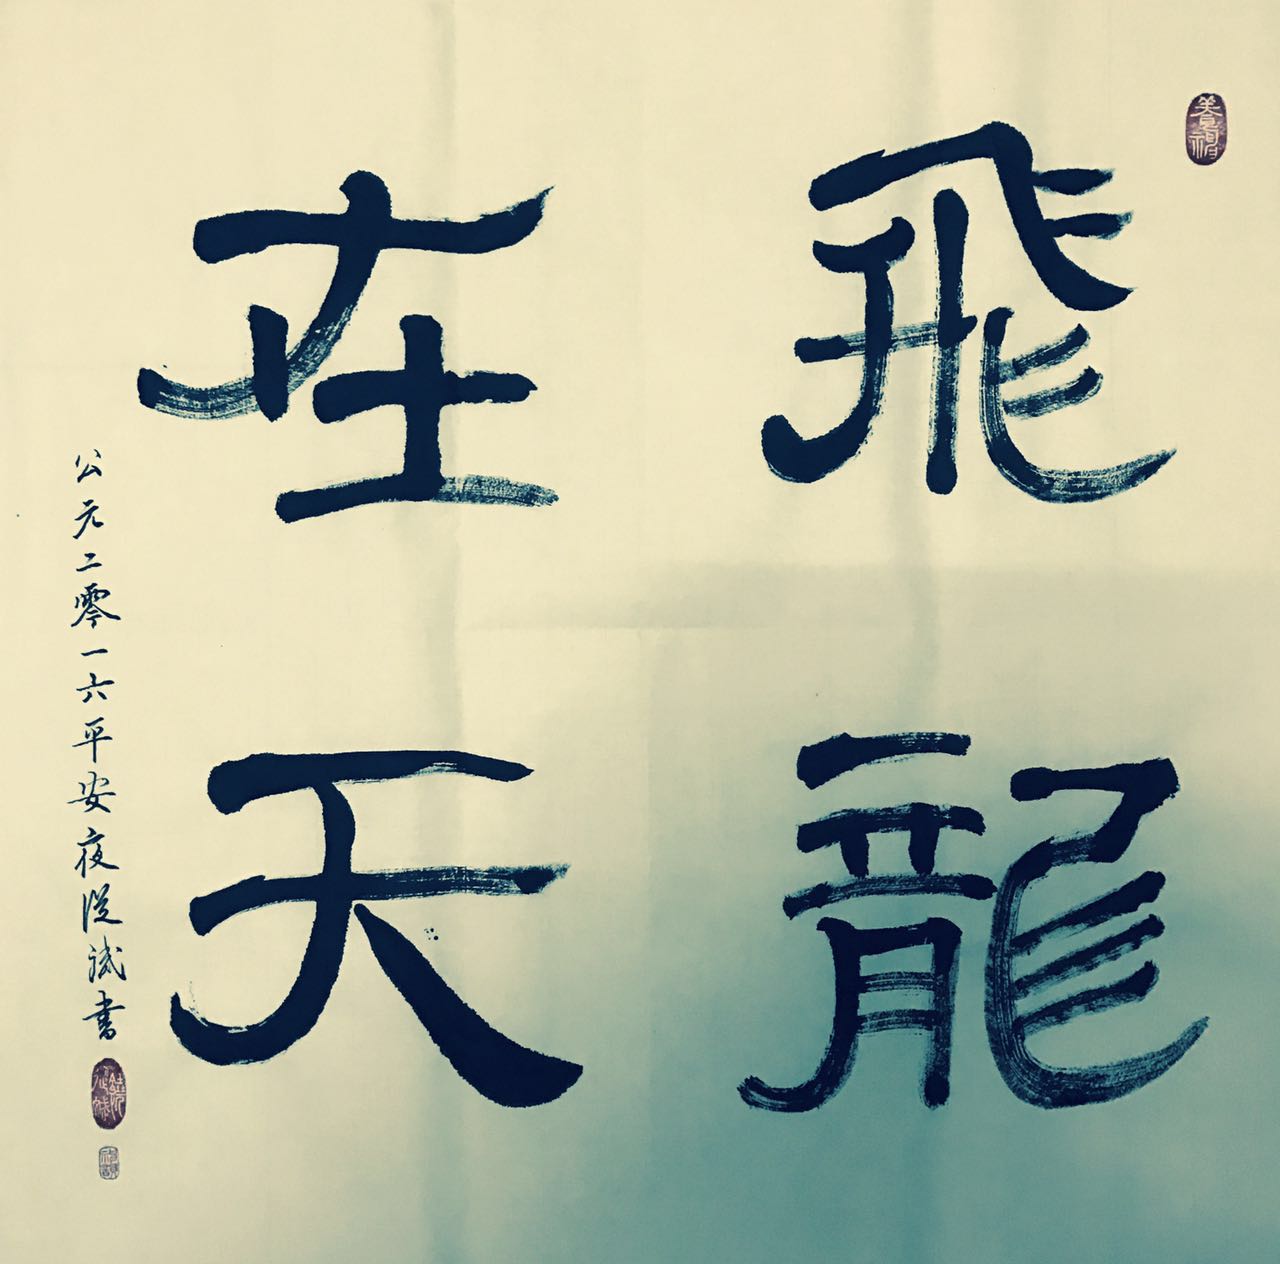 飛龍
在天
公元二零一六平安夜從誠書